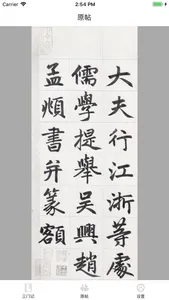 Carrier
2:54 PM
原帖
大夫行江浙等處
儒學提舉吳興趙
孟頫書并篆額
三门记
原帖
设置